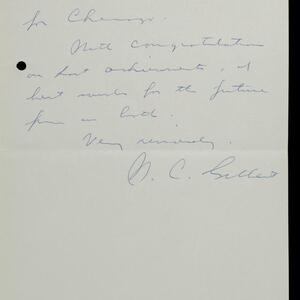 for Chicago.
With congratulations
on past achievements, &
best wishes for the future
from us both.
Very sincerely,
N. C. Gilbert